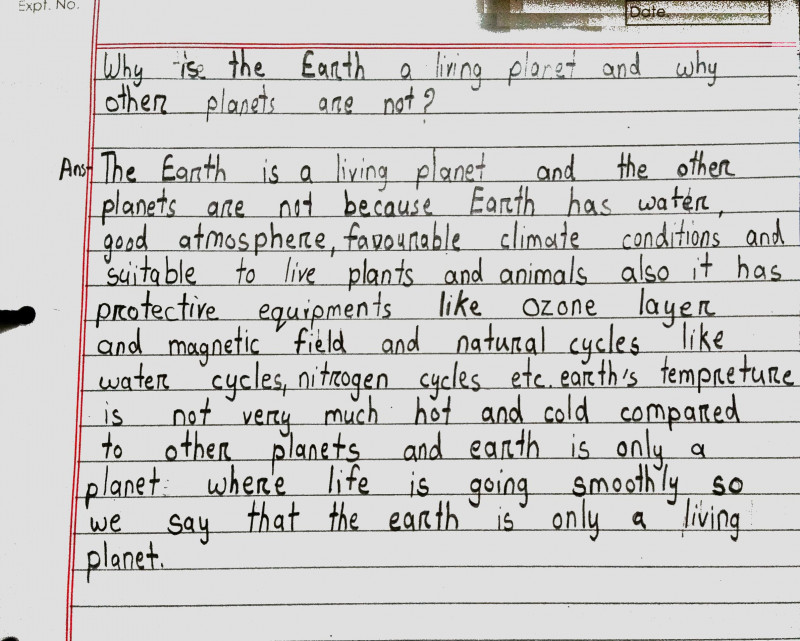 Expt. No.
Date
Why ise the Earth a living planet and why
other planets are not?
Ans The Earth is a living planet and the other
planets are not because Earth has water,
good atmosphere, favourable climate conditions and
suitable to live plants and animals also it has
protective equipments like ozone layer
and magnetic field and natural cycles like
water cycles, nitrogen cycles etc. earth's tempreture
is not very much hot and cold compared
to other planets and earth is only a
planet where life is going smoothly so
we say that the earth is only a living
planet.